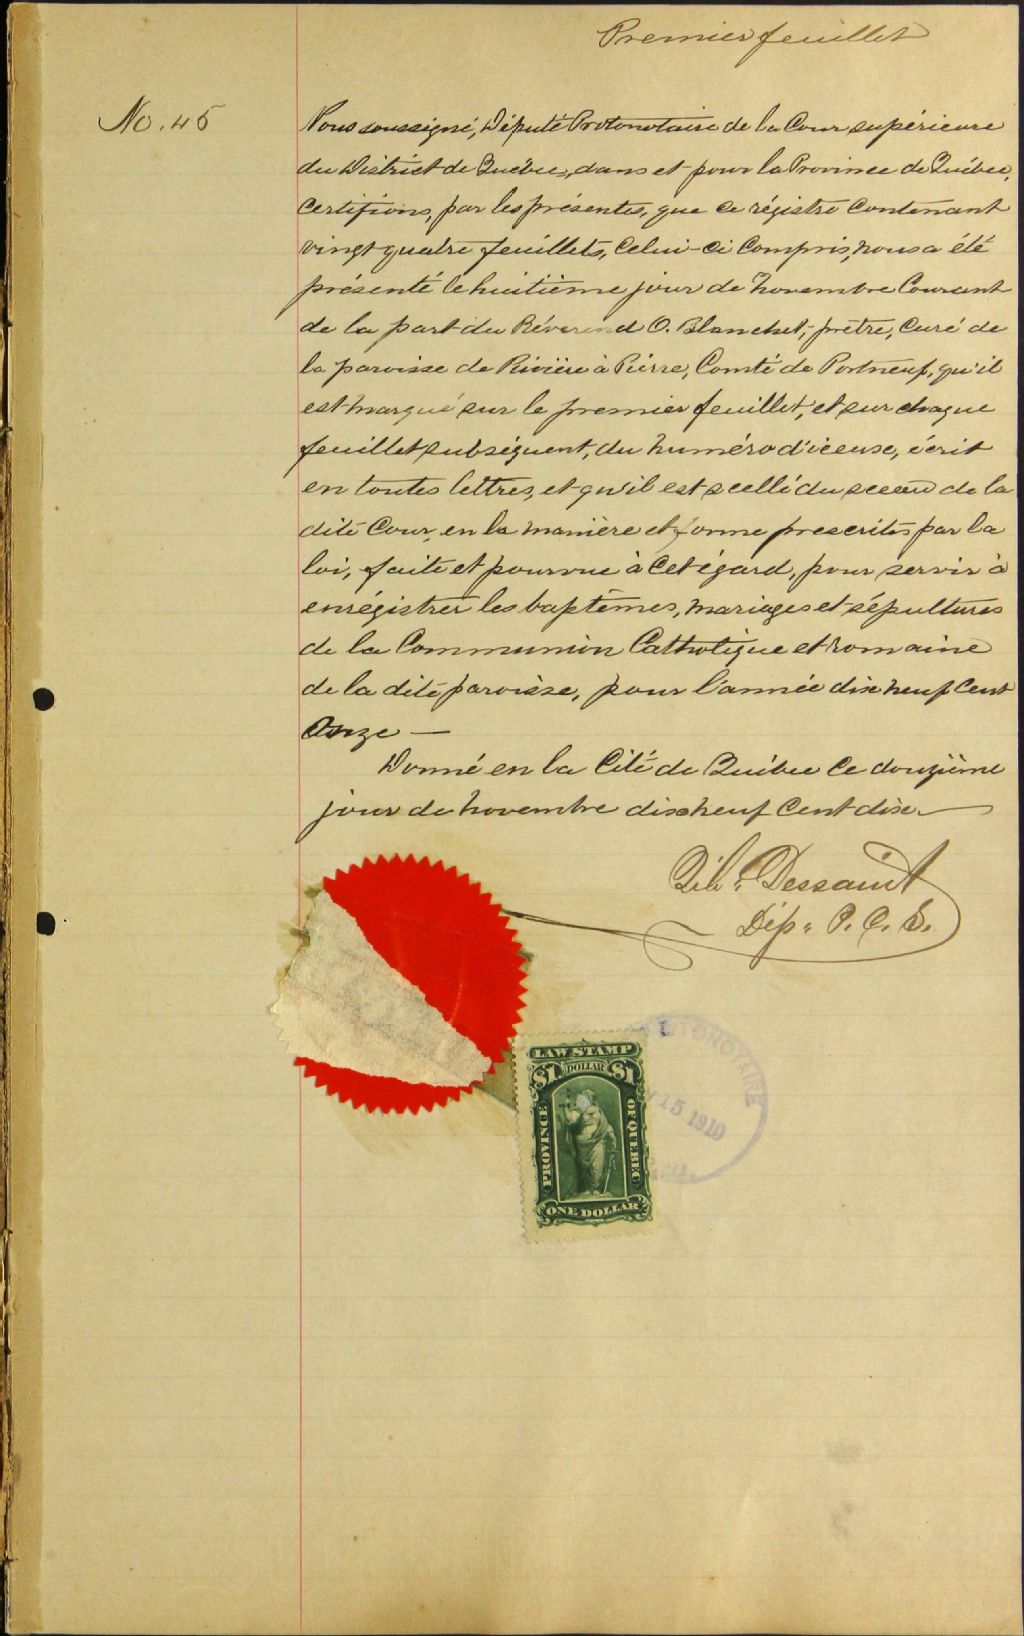 Premier feuillet
No. 45
Nous soussigné, Député Protonotaire de la Cour supérieure
du District de Québec, dans et pour la Province de Québec,
Certifions, par les présentes, que ce régistre contenant
vingt quatre feuillets, Celui-ci Compris, nous a été
présenté le huitième jour de Novembre Courant
de la part du Révérend O. Blanchet, prêtre, Curé de
la paroisse de Rivière à Pierre, Comté de Portneuf, qu'il
est marqué sur le premier feuillet, et sur chaque
feuillet subséquent, du numéro d'iceux, écrit
en toutes lettres, et qu'il est scellé du sceau de la
dite Cour, en la manière et forme prescrites par la
loi, faite et pourvue à cet égard, pour servir à
enrégistrer les baptêmes, mariages et sépultures
de la Communion Catholique et romaine
de la dite paroisse, pour l'année dix neuf Cent
Onze —
Donné en la Cité de Québec Ce douzième
jour de novembre dix neuf Cent dix —
Dessaint
Dép. P. C. S.
LAW STAMP
$1. DOLLAR $1
PROVINCE OF QUEBEC
ONE DOLLAR
15 1910